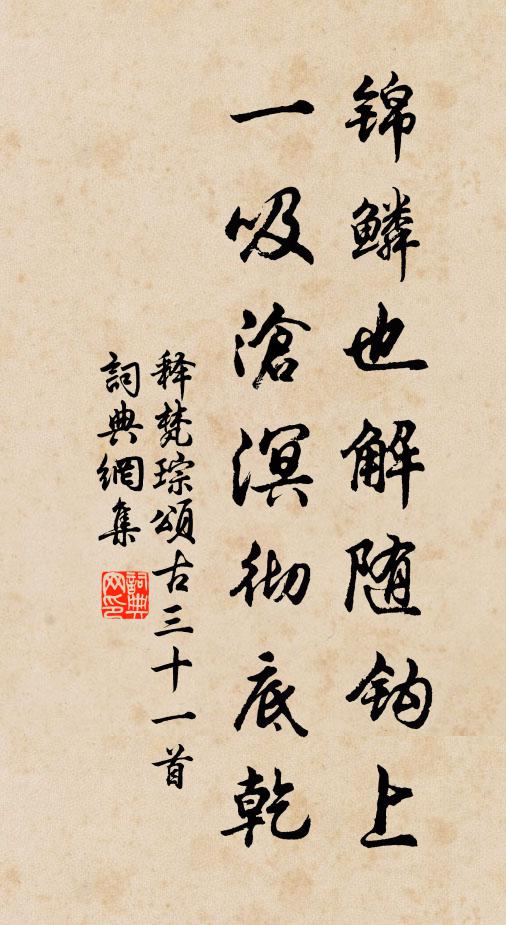 锦鳞也解随钩上
一吸滄溟彻底乾
释梵琮頌古三十一首
詞典網集
詞典网印